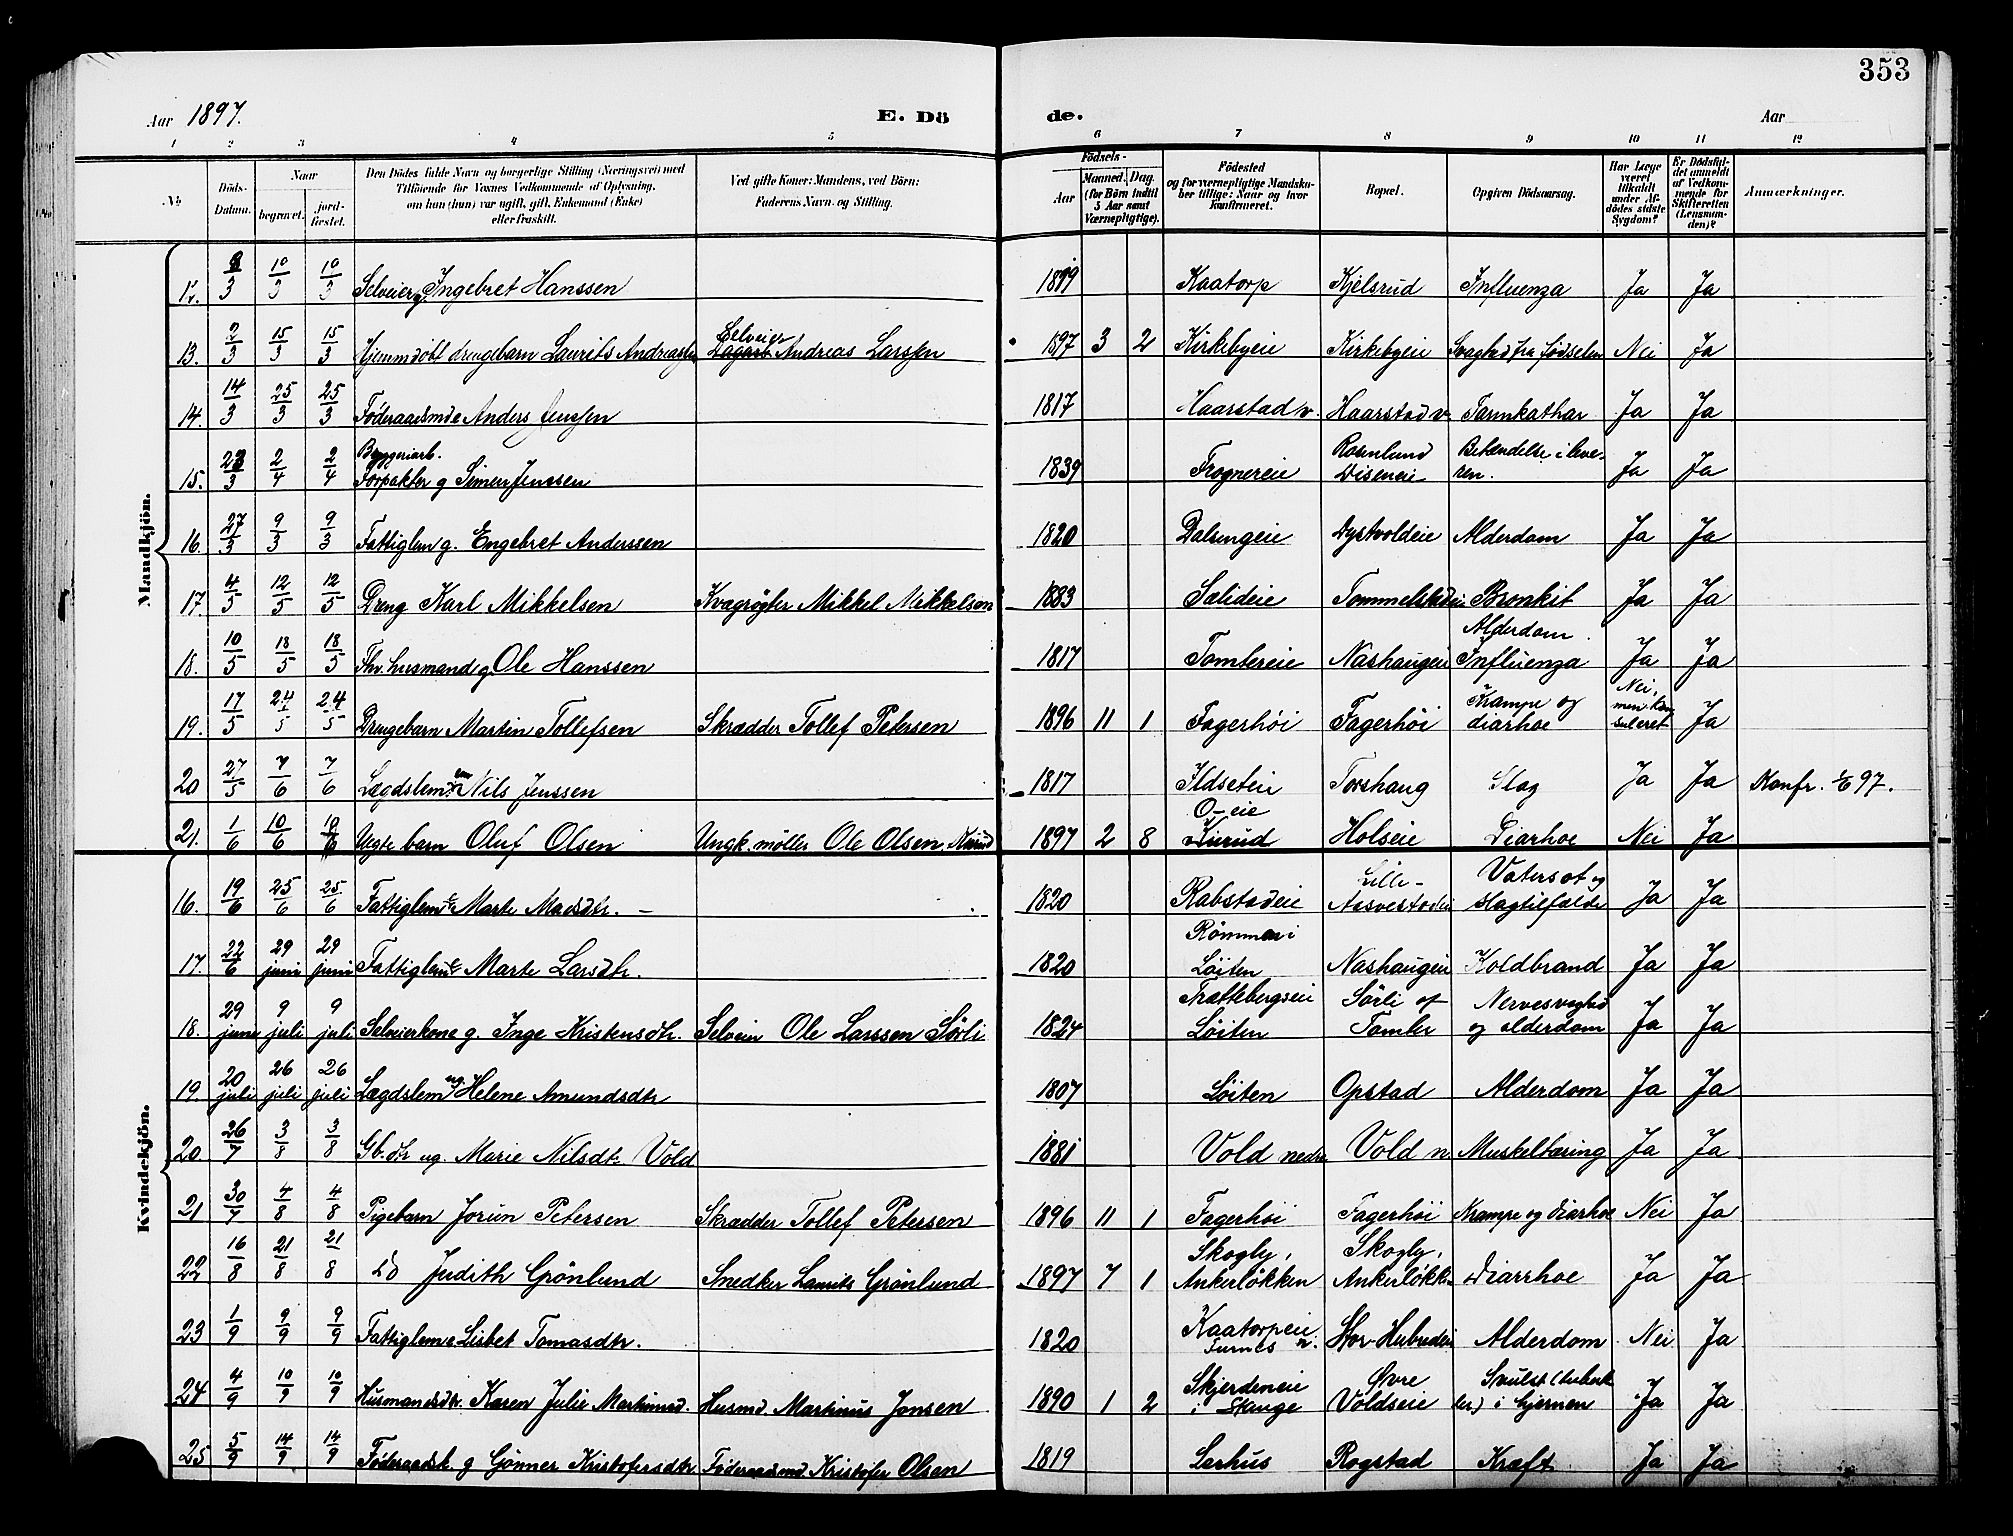 353
Aar 1897. E. Dö de. Aar
1 2 3 4 5 6 7 8 9 10 11 12
No Döds-Datum. Naar begravet. jordfæstet. Den Dödes fulde Navn og borgerlige Stilling (Næringsvei) med Tilföiende for Voxnes Vedkommende af Oplysning, om han (hun) var ugift, gift, Enkemand (Enke) eller fraskilt. Ved gifte Koner: Mandens, ved Börn: Faderens Navn og Stilling. Födsels- Aar Maaned. Dag. (for Börn indtil 5 Aar samt Værnepligtige). Födested og for værnepligtige Mandskaber tillige: Naar og hvor konfirmeret. Bopæl. Opgiven Dödsaarsag. Har Læge været tilkaldt under Afdödes sidste Sygdom? Er Dödsfaldet anmeldt af Vedkommende for Skifteretten (Lensmanden)? Anmærkninger.
Mandkjön.
12. 8/3 10/3 10/3 Selveier g Ingebret Hanssen 1819 Kaatorp Kjelsrud Influenza Ja Ja
13. 2/3 15/3 15/3 Hjemmdöbt drengebarn Laurits Andreassen Selveier Andreas Larsen 1897 3 2 Kirkebyeie Kirkebyeie Svaghed fra fødselen Nei Ja
14. 14/3 25/3 25/3 Føderaadsmd Anders Jensen 1817 Haarstad v. Haarstad v. Tarmkathar Ja Ja
15. 23/3 2/4 2/4 Bryggeriarb. Forpakter g Simen Jenssen 1839 Frognereie Roenlund Diseneie Betændelse i leveren. Ja Ja
16. 27/3 9/3 9/3 Fattiglem g. Engebret Anderssen 1820 Dalsengeie Dystvoldeie Alderdom Ja Ja
17. 4/5 12/5 12/5 Dreng Karl Mikkelsen Kvægrøgter Mikkel Mikkelsen 1883 Sælideie Tommelstadeie Bronkit Ja Ja
18. 10/5 18/5 18/5 Fhv. husmand g. Ole Hanssen 1817 Tomtereie Nashaugeie Alderdom. Influenza Ja Ja
19. 17/5 24/5 24/5 Drengebarn Martin Tollefsen Skrædder Tollef Petersen 1896 11 1 Fagerhöi Fagerhöi Krampe og diarhoe Nei, men konsuleret Ja
20 27/5 7/6 7/6 Lægdslem em Nils Jenssen 1817 Ildseteie Torshaug Slag Ja Ja Konfr. 97.
21. 1/6 10/6 10/6 Uegte barn Oluf Olsen Ungk. møller Ole Olsen, 1897 2 8 O-eie Holseie Diarhoe Nei Ja
Kvindekjön.
16. 19/6 25/6 25/6 Fattiglem e Marte Madsdtr. — 1820 Rabstadeie Lille-Aasvestadeie Vatersot og slagtilfælde Ja Ja
17. 22/6 29 juni 29 juni Fattiglem e Marte Larsdtr. 1820 Rømmen i Løiten Nashaugeie Koldbrand Ja Ja
18. 29 juni 9 juli 9 juli Selveierkone g. Inge Kristensdtr. Selveier Ole Larssen Sörli 1824 Trættebergseie Løiten Sörli af Tomter Nervesvaghed og alderdom Ja Ja
19. 20 juli 26 juli 26 juli Lægdslem ug. Helene Amundsdtr 1807 Løiten Opstad Alderdom Ja Ja
20. 26/7 3/8 3/8 Gb. dtr ug. Marie Nilsdtr. Vold 1881 Vold nedre Vold n. Muskeltæring Ja Ja
21 30/7 4/8 4/8 Pigebarn Jorün Petersen Skrædder Tollef Petersen 1896 11 1 Fagerhöi Fagerhöi Krampe og diarhoe Nei Ja
22 16/8 21/8 21/8 do Judith Grönlund Snedker Laurits Grönlund 1897 7 1 Skogby, Ankerløkken Skogby, Ankerløkken Diarrhoe Ja Ja
23 1/9 9/9 9/9 Fattiglem e Lisbet Tomasdtr. 1820 Kaatorpeie Furnes Stor-Hubredeie Alderdom Nei Ja
24 4/9 10/9 10/9 Husmandsdtr. Karen Julie Martinusd. Husmd. Martinus Jonsen 1890 1 2 Skjerdeneie i Stange Øvre Voldseie Svulst (tuberkler) i hjernen Ja Ja
25 5/9 14/9 14/9 Føderaadsk. g Gönner Kristofersdtr. Føderaadsmd Kristofer Olsen 1819 Lerhus Rogstad Kræft Ja Ja